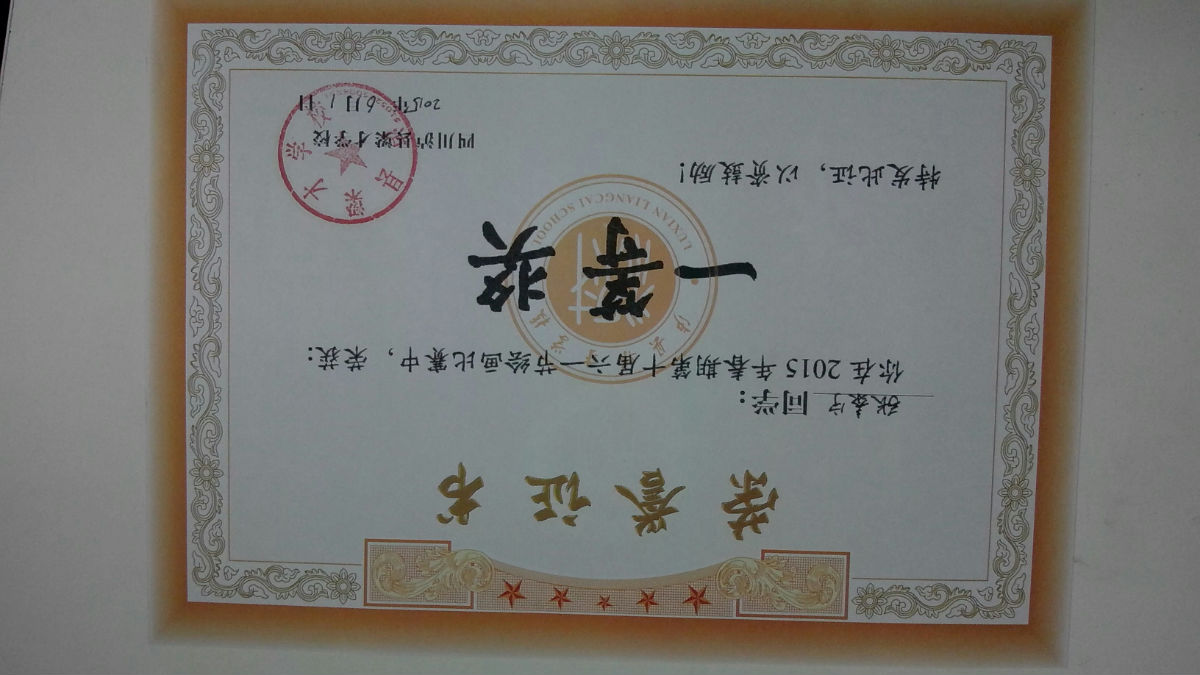 荣誉证书
同学：
你在2015年春期第十届六一节绘画比赛中，荣获：
一等奖
特发此证，以资鼓励！
四川泸县梁才学校
2015年6月1日
LUXIAN LIANGCAI SCHOOL